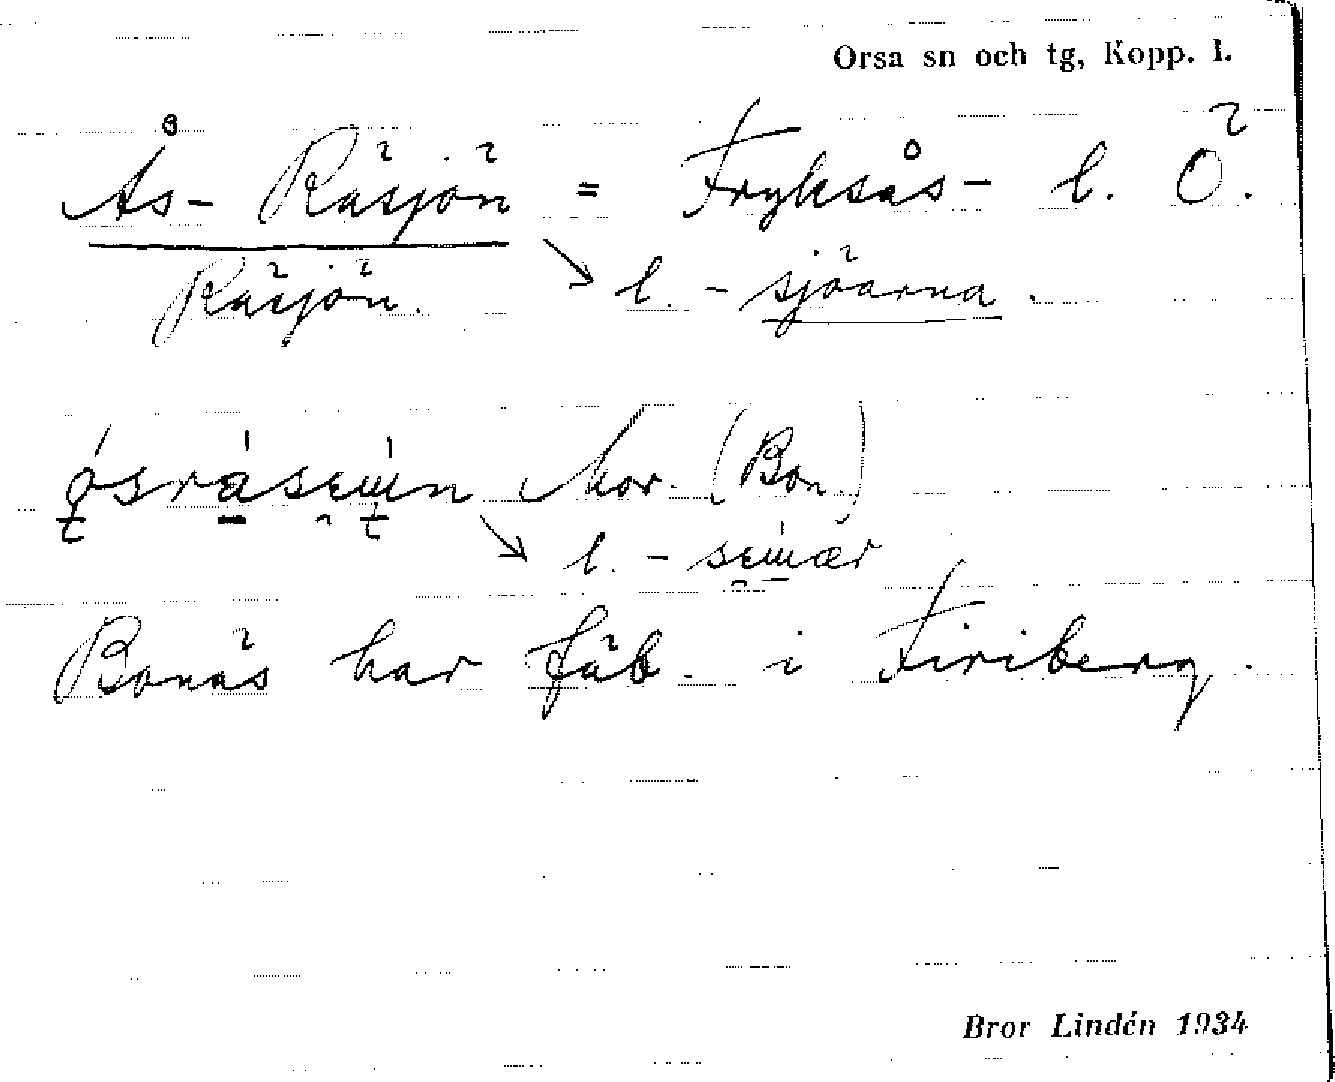 Orsa sn och tg, Kopp. l.
Ås- Räsjön = Fryksås- l. Ö.
Räsjön. l. - sjöarna.
Mor. (Bon.)
l. -
Bonäs har fäb. i Firiberg.
Bror Lindén 1934